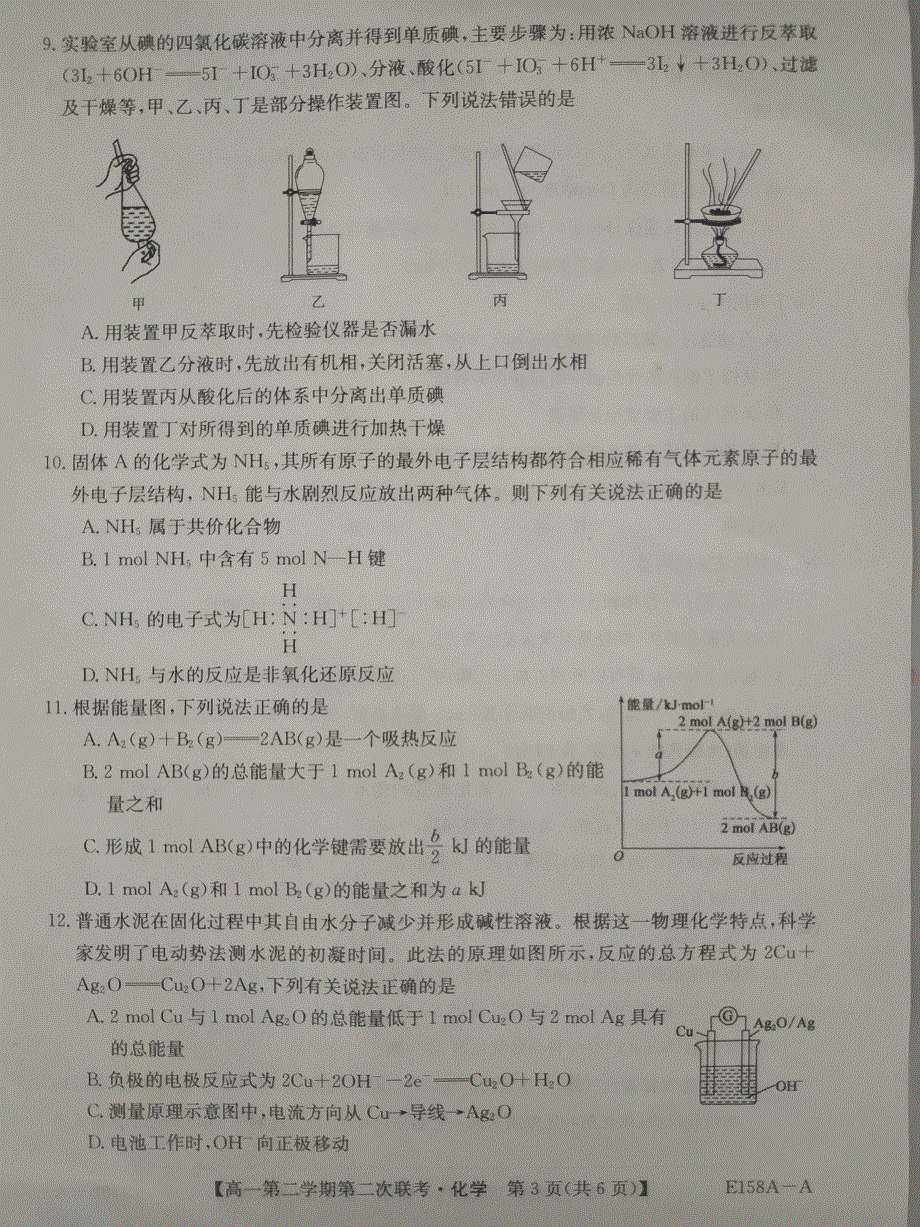 9. 实验室从碘的四氯化碳溶液中分离并得到单质碘,主要步骤为:用浓 NaOH 溶液进行反萃取
(3I₂+6OH⁻══5I⁻+IO₃⁻+3H₂O)、分液、酸化(5I⁻+IO₃⁻+6H⁺══3I₂↓+3H₂O)、过滤
及干燥等,甲、乙、丙、丁是部分操作装置图。下列说法错误的是
甲 乙 丙 丁
A. 用装置甲反萃取时,先检验仪器是否漏水
B. 用装置乙分液时,先放出有机相,关闭活塞,从上口倒出水相
C. 用装置丙从酸化后的体系中分离出单质碘
D. 用装置丁对所得到的单质碘进行加热干燥
10. 固体 A 的化学式为 NH₅,其所有原子的最外电子层结构都符合相应稀有气体元素原子的最
外电子层结构, NH₅ 能与水剧烈反应放出两种气体。则下列有关说法正确的是
A. NH₅ 属于共价化合物
B. 1 mol NH₅ 中含有 5 mol N—H 键
H
‥
C. NH₅ 的电子式为[H∶N∶H]⁺[∶H]⁻
‥
H
D. NH₅ 与水的反应是非氧化还原反应
11. 根据能量图,下列说法正确的是
A. A₂(g)+B₂(g)══2AB(g)是一个吸热反应
B. 2 mol AB(g)的总能量大于 1 mol A₂(g)和 1 mol B₂(g)的能
量之和
C. 形成 1 mol AB(g)中的化学键需要放出 b/2 kJ 的能量
D. 1 mol A₂(g)和 1 mol B₂(g)的能量之和为 a kJ
能量/kJ·mol⁻¹
2 mol A(g)+2 mol B(g)
a
b
1 mol A₂(g)+1 mol B₂(g)
2 mol AB(g)
O 反应过程
12. 普通水泥在固化过程中其自由水分子减少并形成碱性溶液。根据这一物理化学特点,科学
家发明了电动势法测水泥的初凝时间。此法的原理如图所示,反应的总方程式为 2Cu+
Ag₂O══Cu₂O+2Ag,下列有关说法正确的是
A. 2 mol Cu 与 1 mol Ag₂O 的总能量低于 1 mol Cu₂O 与 2 mol Ag 具有
的总能量
B. 负极的电极反应式为 2Cu+2OH⁻−2e⁻══Cu₂O+H₂O
C. 测量原理示意图中,电流方向从 Cu→导线→Ag₂O
D. 电池工作时,OH⁻向正极移动
G
Cu Ag₂O/Ag
OH⁻
【高一第二学期第二次联考·化学 第 3 页(共 6 页)】 E158A—A